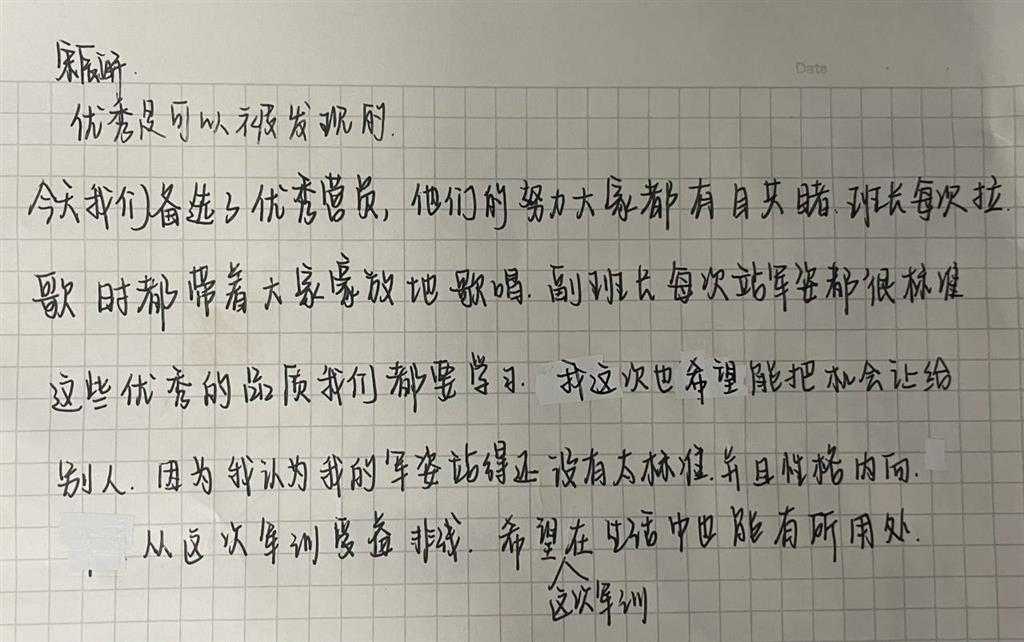 Date
优秀是可以被发现的.
今天我们备选了优秀营员,他们的努力大家都有目共睹.班长每次拉
歌时都带着大家豪放地歌唱.副班长每次站军姿都很标准
这些优秀的品质我们都要学习.我这次也希望能把机会让给
别人.因为我认为我的军姿站得还没有太标准.并且性格内向.
从这次军训受益非浅.希望在生活中也能有所用处.
这次军训